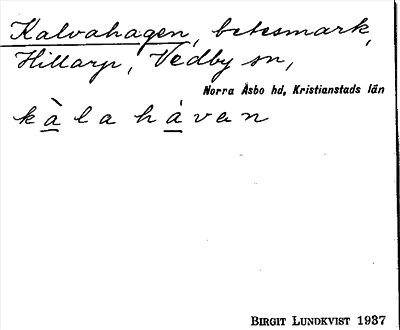 Kalvahagen, betesmark,
Hillarp, Vedby sn,
Norra Åsbo hd, Kristianstads län
kàlahávan
BIRGIT LUNDKVIST 1937